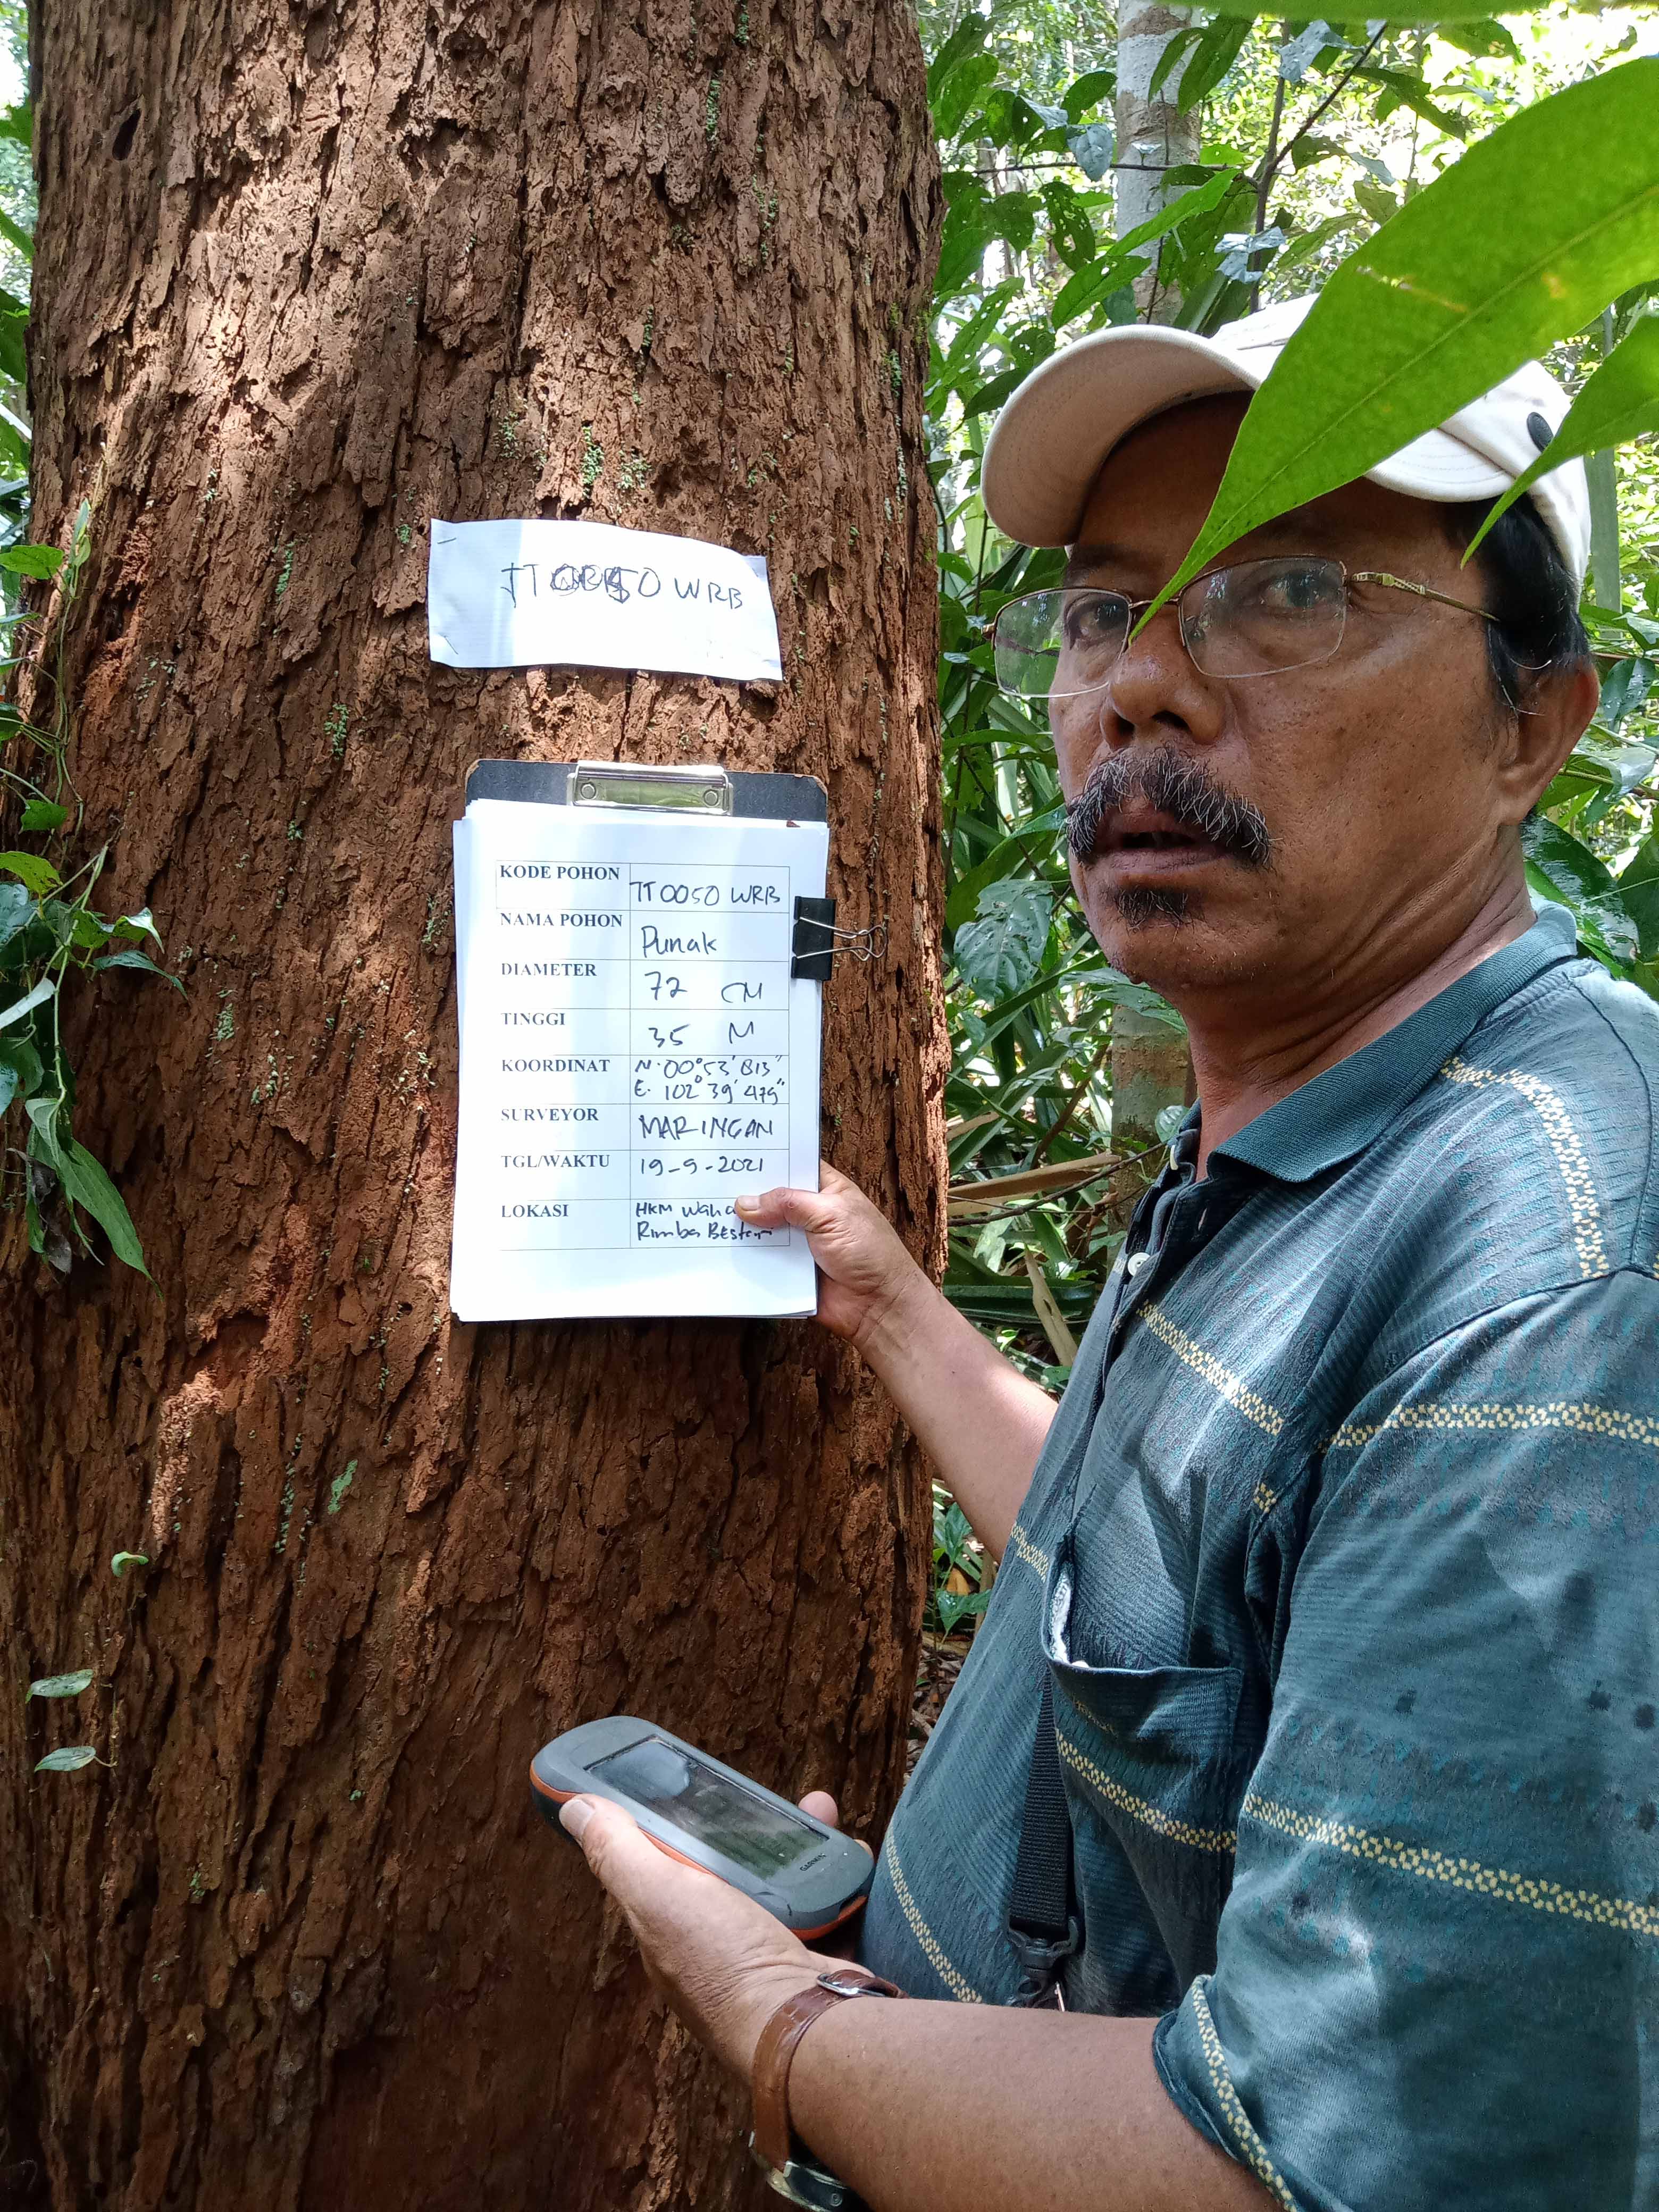 TT0050 WRB
KODE POHON TT0050 WRB
NAMA POHON Punak
DIAMETER 72 CM
TINGGI 35 M
KOORDINAT N. 00° 53' 813"
E. 102° 39' 479"
SURVEYOR MARINGAN
TGL/WAKTU 19-9-2021
LOKASI HKM
Rimba BEStari
GARMIN